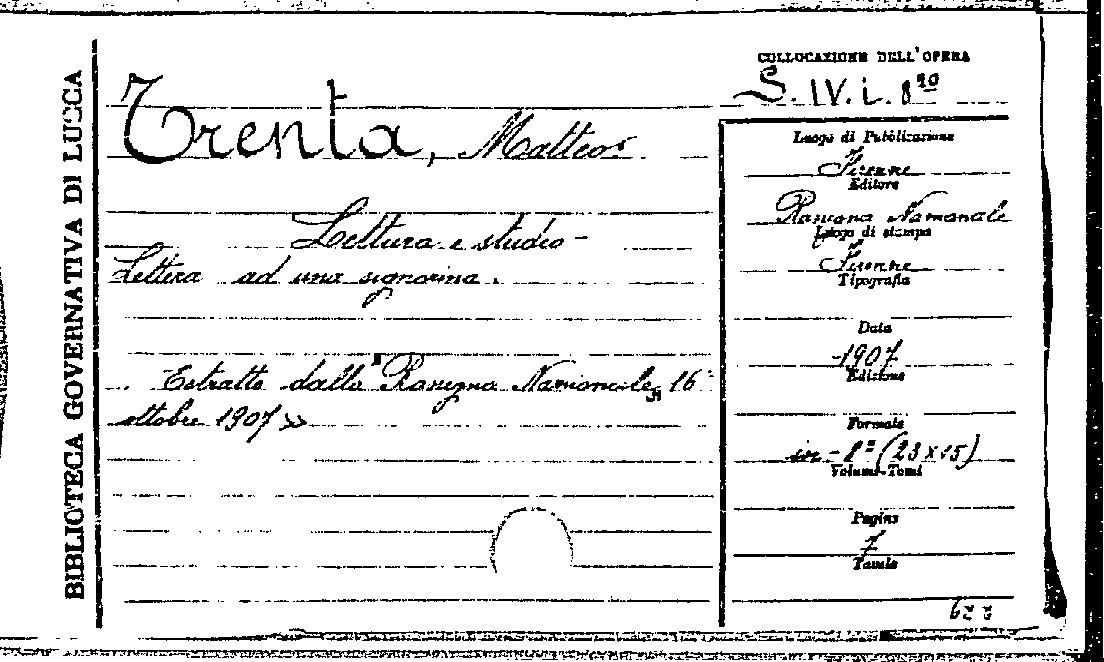 BIBLIOTECA GOVERNATIVA DI LUCCA
COLLOCAZIONE DELL'OPERA
S. IV. i. 8
Trenta, Matteo
Lettura e studio -
Lettera ad una signorina.
Estratto dalla "Rassegna Nazionale, 16
ottobre 1907 »
Luogo di Pubblicazione
Firenze
Editore
Rassegna Nazionale
Luogo di stampa
Firenze
Tipografia
Data
1907
Edizione
Formato
in - 8º (23 x 15)
Volumi-Tomi
Pagine
7
Tavole